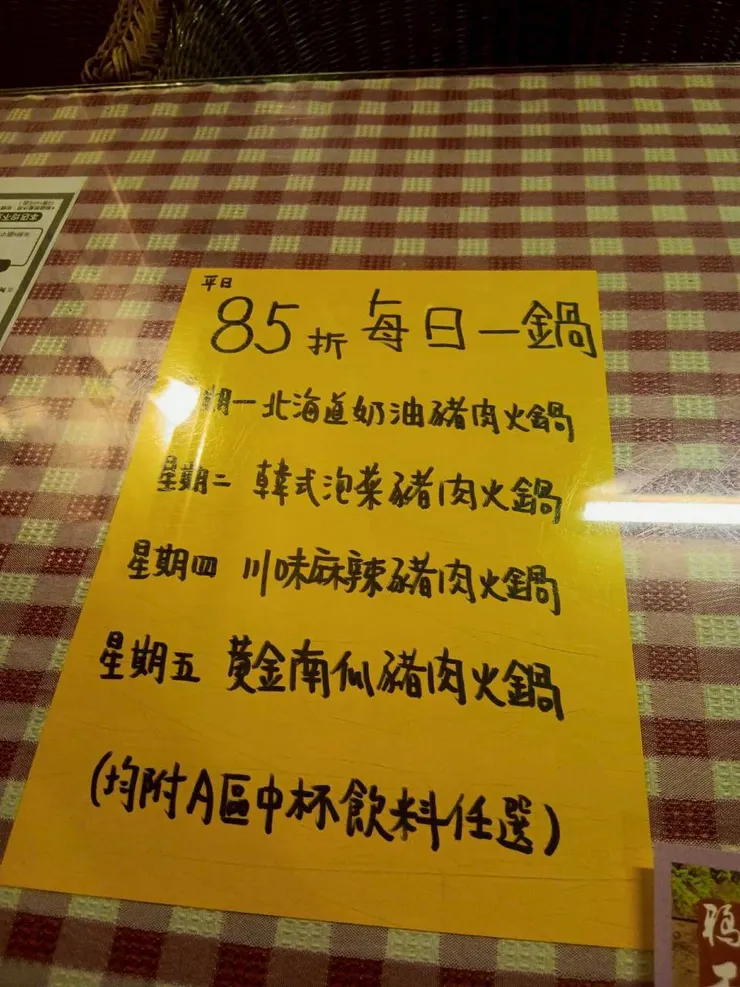 平日
85折 每日一鍋
期一 北海道奶油豬肉火鍋
星期二 韓式泡菜豬肉火鍋
星期四 川味麻辣豬肉火鍋
星期五 黃金南瓜豬肉火鍋
(均附A區中杯飲料任選)